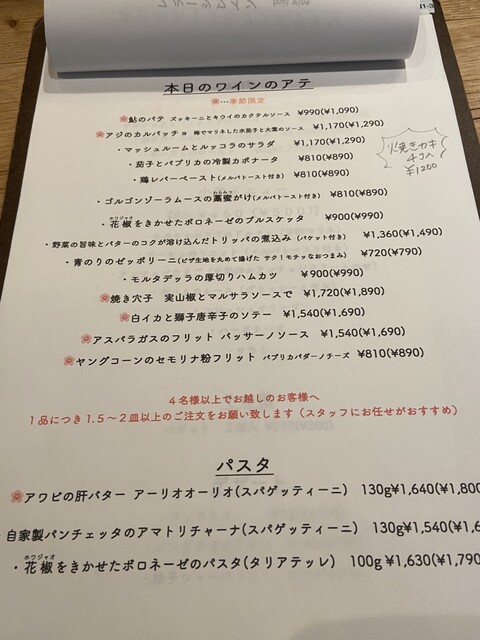 本日のワインのアテ
…季節限定
鮎のパテ ズッキーニとキウイのカクテルソース ¥990(¥1,090)
アジのカルパッチョ 梅でマリネした水茄子と大葉のソース ¥1,170(¥1,290)
・マッシュルームとルッコラのサラダ ¥1,170(¥1,290)
・茄子とパプリカの冷製カポナータ ¥810(¥890)
・鶏レバーペースト(メルバトースト付き) ¥810(¥890)
・ゴルゴンゾーラムースの藁蜜がけ(メルバトースト付き) ¥810(¥890)
わらみつ
・花椒をきかせたボロネーゼのブルスケッタ ¥900(¥990)
ホワジャオ
・野菜の旨味とバターのコクが溶け込んだトリッパの煮込み (バケット付き) ¥1,360(¥1,490)
・青のりのゼッポリーニ(ピザ生地を丸めて揚げた サク!モチッなおつまみ) ¥720(¥790)
・モルタデッラの厚切りハムカツ ¥900(¥990)
焼き穴子 実山椒とマルサラソースで ¥1,720(¥1,890)
白イカと獅子唐辛子のソテー ¥1,540(¥1,690)
アスパラガスのフリット バッサーノソース ¥1,540(¥1,690)
ヤングコーンのセモリナ粉フリット パプリカバターノチーズ ¥810(¥890)
火焼きカキ
4コ入
¥1200
4名様以上でお越しのお客様へ
1品につき1.5〜2皿以上のご注文をお願い致します(スタッフにお任せがおすすめ)
パスタ
アワビの肝バター アーリオオーリオ(スパゲッティーニ) 130g¥1,640(¥1,800
自家製パンチェッタのアマトリチャーナ(スパゲッティーニ) 130g¥1,540(¥1,6
ホワジャオ
・花椒をきかせたボロネーゼのパスタ(タリアテッレ) 100g ¥1,630(¥1,790